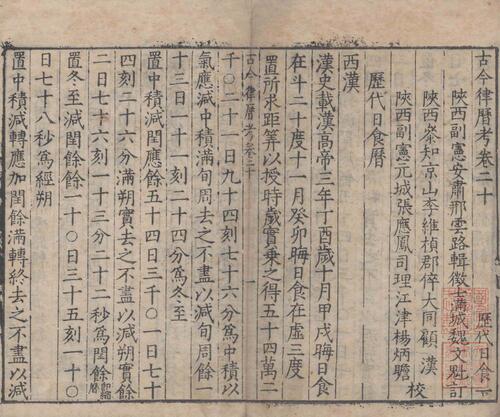 古今律曆考卷二十 歷代日食
陝西副憲安肅邢雲路輯徵士滿城魏文魁訂
陝西叅知京山李維楨郡倅大同顧 漢
陝西副憲元城張應鳳司理江津楊炳瞻 校
歷代日食曆
西漢
漢史載漢高帝三年丁酉歲十月甲戌晦日食
在斗二十度十一月癸卯晦日食在虛三度
置所求距筭以授時歲實乘之得五十四萬二
古今律曆考卷二十 一
千〇二十一日九十四刻七十六分為中積以
氣應減中積滿旬周去之不盡以減旬周餘一
十三日一十一刻二十四分為冬至
置中積減閏應五十四萬二千〇一日七十
四刻二十六分滿朔實去之不盡以減朔實餘
二日七十六刻一十三分二十二秒為閏餘
置冬至減閏餘一十〇日三十五刻一十〇
分七十八秒為經朔
置中積減轉應加閏餘滿轉終去之不盡以減